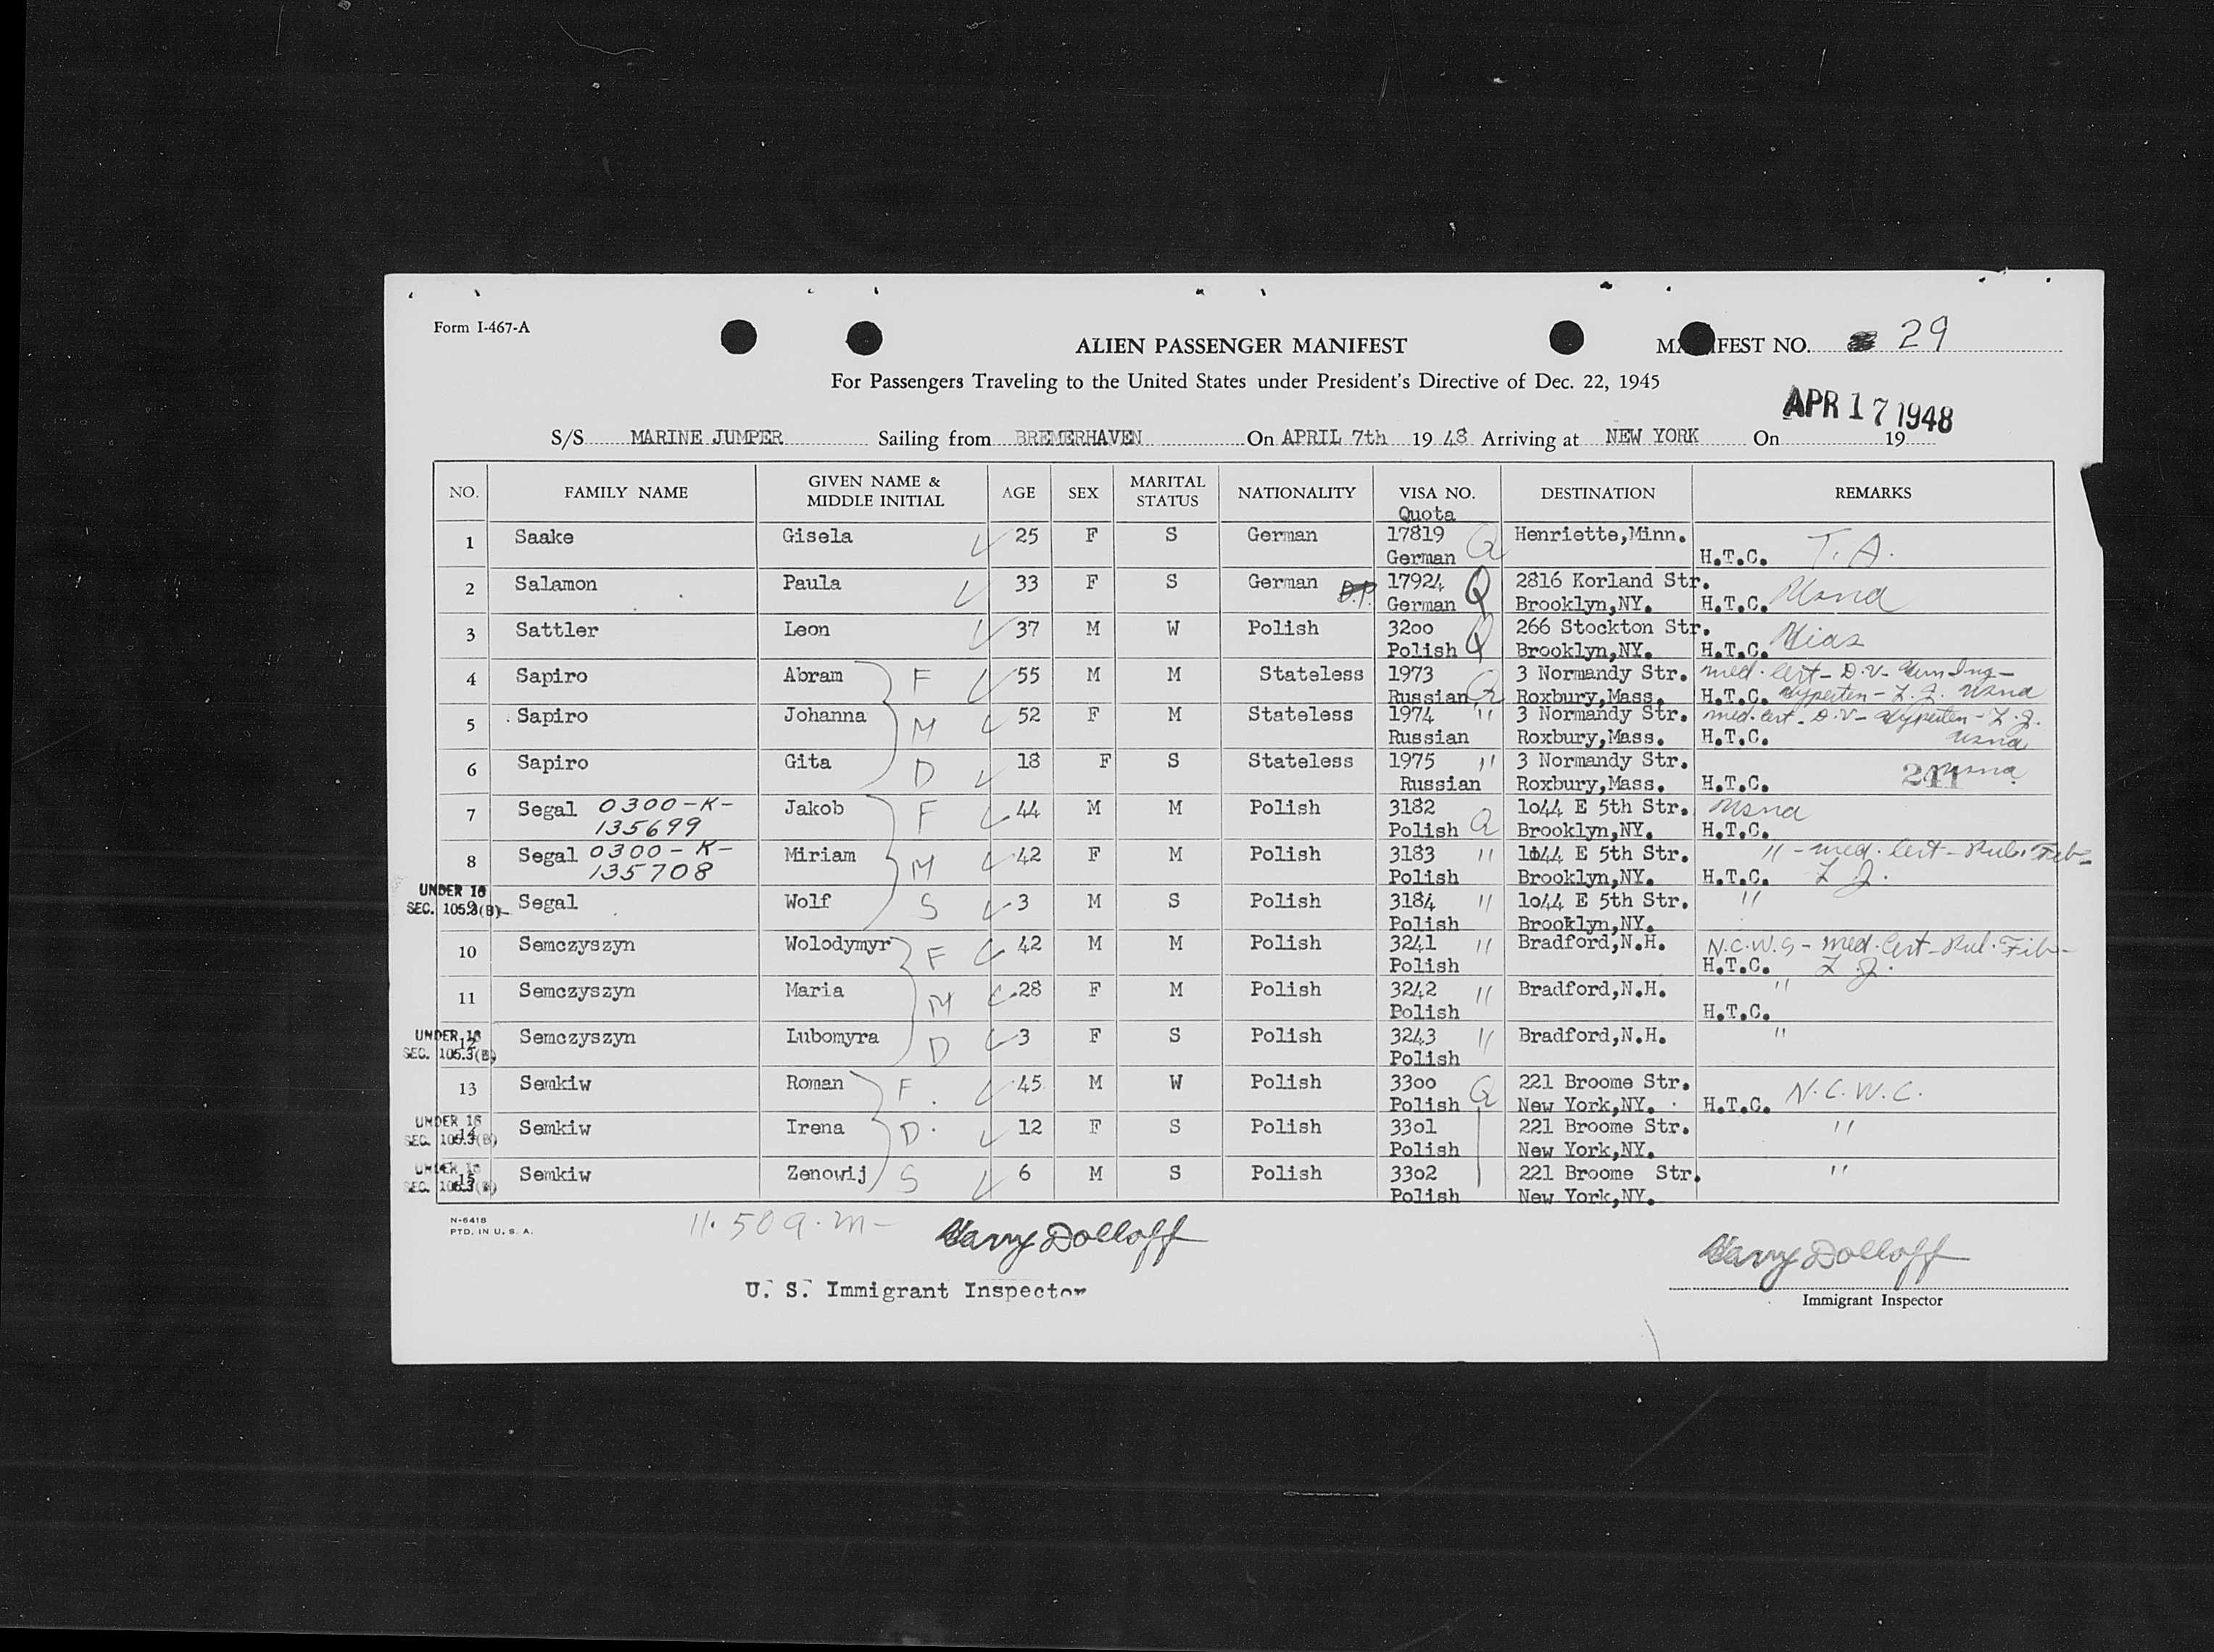 Form I-467-A
ALIEN PASSENGER MANIFEST
MANIFEST NO. 29
For Passengers Traveling to the United States under President's Directive of Dec. 22, 1945
APR 17 1948
S/S MARINE JUMPER Sailing from BREMERHAVEN On APRIL 7th 19 48 Arriving at NEW YORK On 19
NO. FAMILY NAME GIVEN NAME & MIDDLE INITIAL AGE SEX MARITAL STATUS NATIONALITY VISA NO. Quota DESTINATION REMARKS
1 Saake Gisela 25 F S German 17819 Q Henriette,Minn. T. A.
German H.T.C.
2 Salamon Paula 33 F S German 17924 Q 2816 Korland Str. Usna
German Brooklyn,NY. H.T.C.
3 Sattler Leon 37 M W Polish 32oo Q 266 Stockton Str. Hias
Polish Brooklyn,NY. H.T.C.
4 Sapiro Abram F 55 M M Stateless 1973 Q 3 Normandy Str. med. cert - D.V.
Russian Roxbury,Mass. H.T.C. Hyperten - Usna
5 Sapiro Johanna M 52 F M Stateless 1974 " 3 Normandy Str. med. cert. D.V - Hyperten -
Russian Roxbury,Mass. H.T.C. Usna
6 Sapiro Gita D 18 F S Stateless 1975 " 3 Normandy Str. Usna
Russian Roxbury,Mass. H.T.C. 241
7 Segal 0300-K- Jakob F 44 M M Polish 3182 Q 1o44 E 5th Str. Usna
135699 Polish Brooklyn,NY. H.T.C.
8 Segal 0300-K- Miriam M 42 F M Polish 3183 " 1o44 E 5th Str. " - med. Cert -
135708 Polish Brooklyn,NY. H.T.C.
UNDER 16
SEC. 105.3(B) 9 Segal Wolf S 3 M S Polish 3184 " 1o44 E 5th Str. "
Polish Brooklyn,NY.
10 Semczyszyn Wolodymyr F 42 M M Polish 3241 " Bradford,N.H. med. Cert - Pul. Fib -
Polish H.T.C.
11 Semczyszyn Maria M 28 F M Polish 3242 " Bradford,N.H. "
Polish H.T.C.
UNDER 16
SEC. 105.3(B) 12 Semczyszyn Lubomyra D 3 F S Polish 3243 " Bradford,N.H. "
Polish
13 Semkiw Roman F. 45 M W Polish 33oo Q 221 Broome Str. N.C.W.C.
Polish New York,NY. H.T.C.
UNDER 16
SEC. 105.3(B) 14 Semkiw Irena D. 12 F S Polish 33o1 221 Broome Str. "
Polish New York,NY.
UNDER 16
SEC. 105.3(B) 15 Semkiw Zenowij S 6 M S Polish 33o2 221 Broome Str. "
Polish New York,NY.
N-6418
PTD. IN U. S. A.
11.50 a.m- Harry Dolloff Harry Dolloff
U. S. Immigrant Inspector
Immigrant Inspector